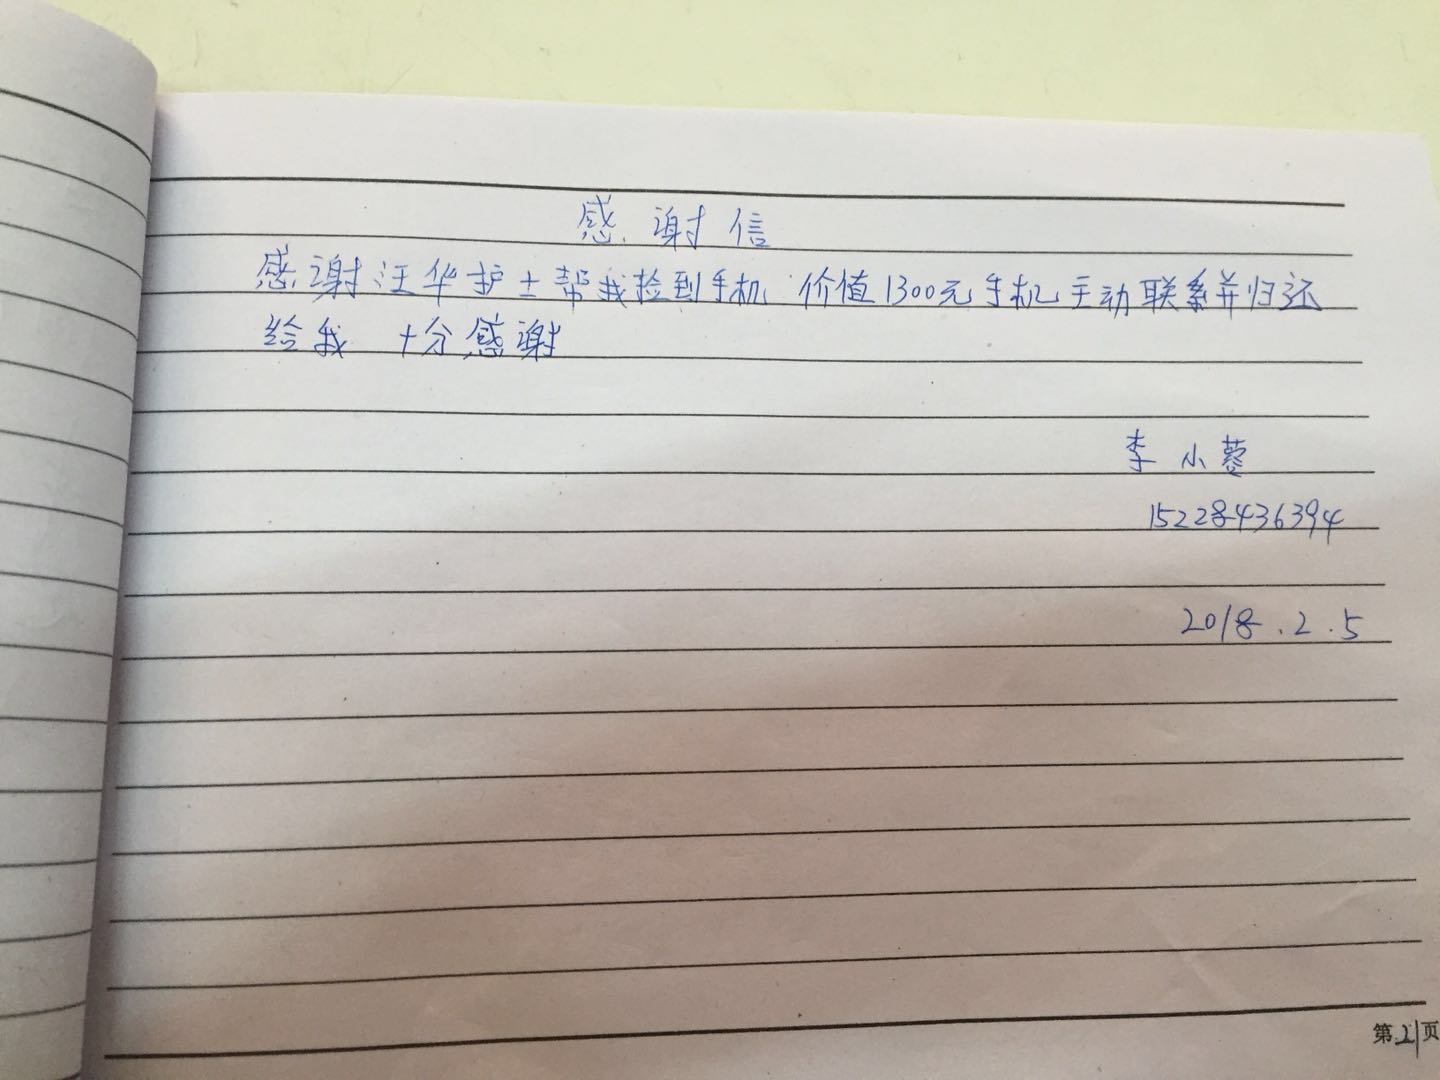 感谢信
感谢汪华护士帮我捡到手机 价值1300元手机主动联系并归还
给我 十分感谢
李小蓉
15228436394
2018.2.5
第21页